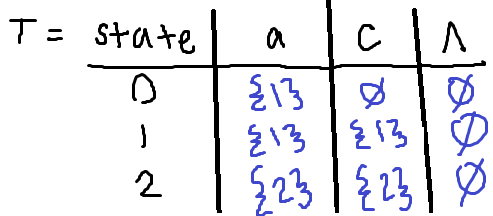 T = state a c Λ
0 {1} ∅ ∅
1 {1} {1} ∅
2 {2} {2} ∅